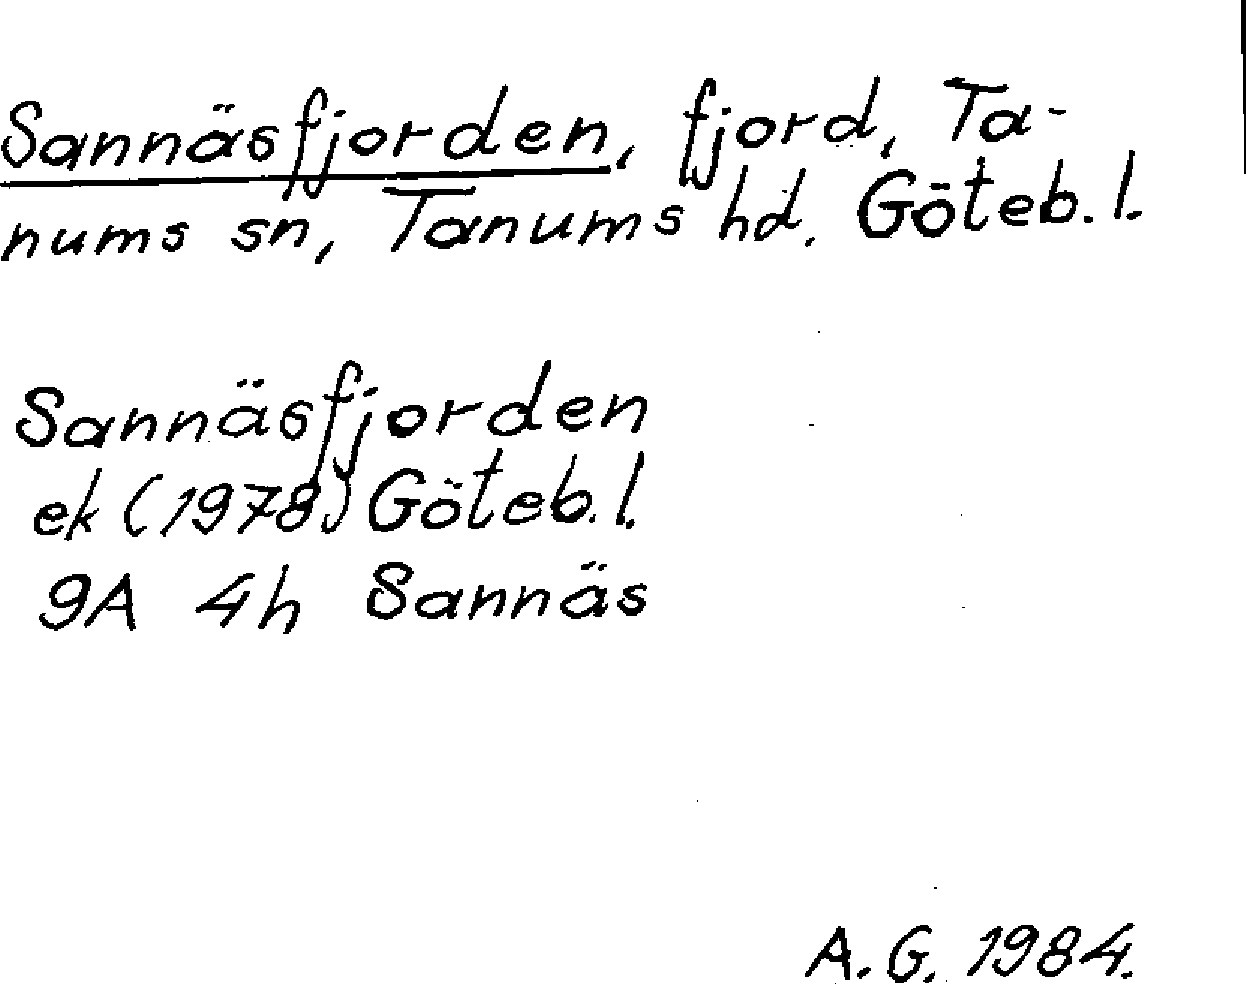 Sannäsfjorden, fjord, Ta-
nums sn, Tanums hd. Göteb. l.
Sannäsfjorden
ek (1978) Göteb. l.
9A 4h Sannäs
A. G. 1984.